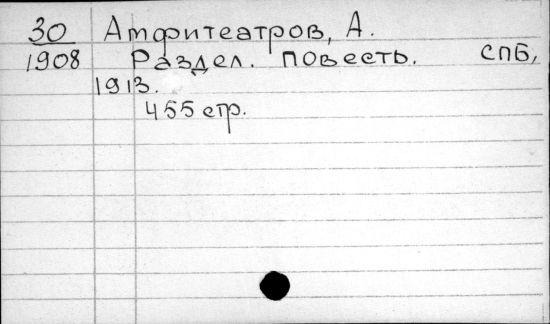 30 Амфитеатров, А.
1908 Раздел. Повесть. СПБ,
1913.
455 стр.